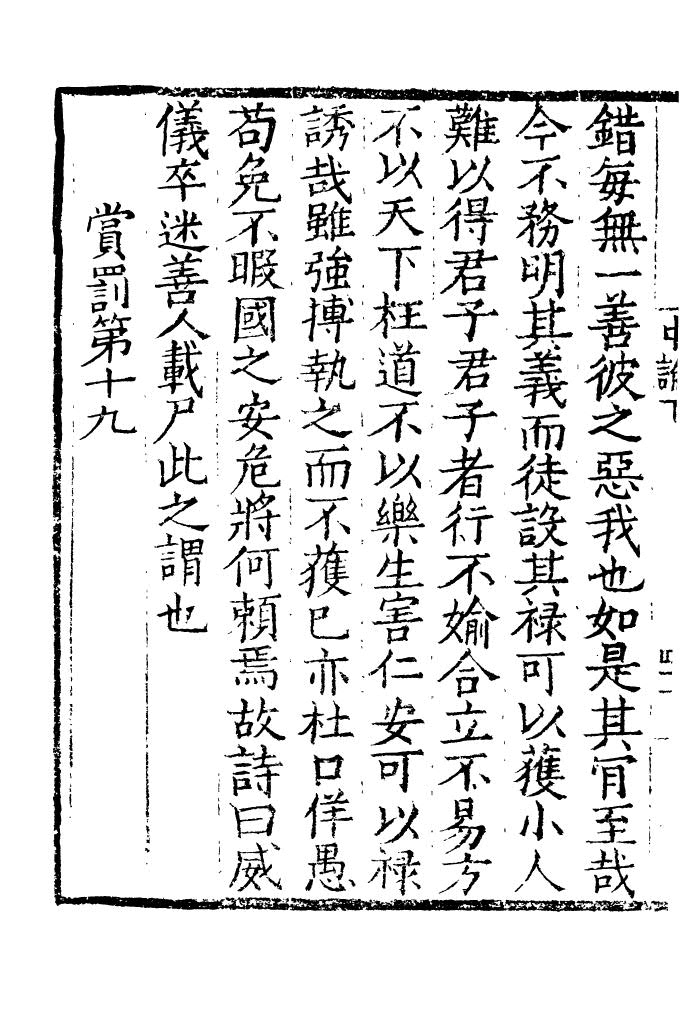 錯毎無一善彼之惡我也如是其肎至哉
今不務明其義而徒設其禄可以獲小人
難以得君子君子者行不媮合立不易方
不以天下枉道不以樂生害仁安可以禄
誘哉雖強搏執之而不獲巳亦杜口佯愚
苟免不暇國之安危將何賴焉故詩曰威
儀卒迷善人載尸此之謂也
賞罰第十九